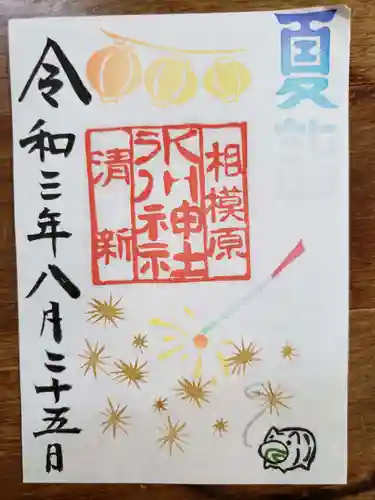 夏詣
相模原
氷川神社
清新
令和三年八月二十五日